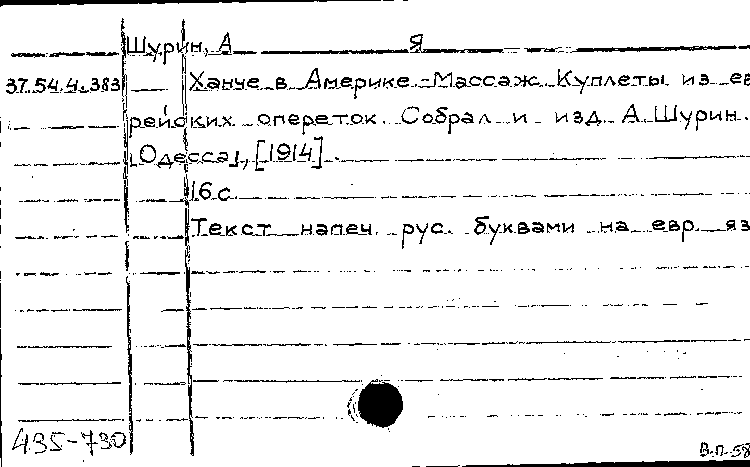 Шурин, А Я
37.54.4.383 Ханче в Америке.-Массаж. Куплеты из ев
рейских опереток. Собрал и изд. А. Шурин.
[Одесса], [1914].
16 с.
Текст напеч. рус. буквами на евр. яз
435-730
В.П.-58